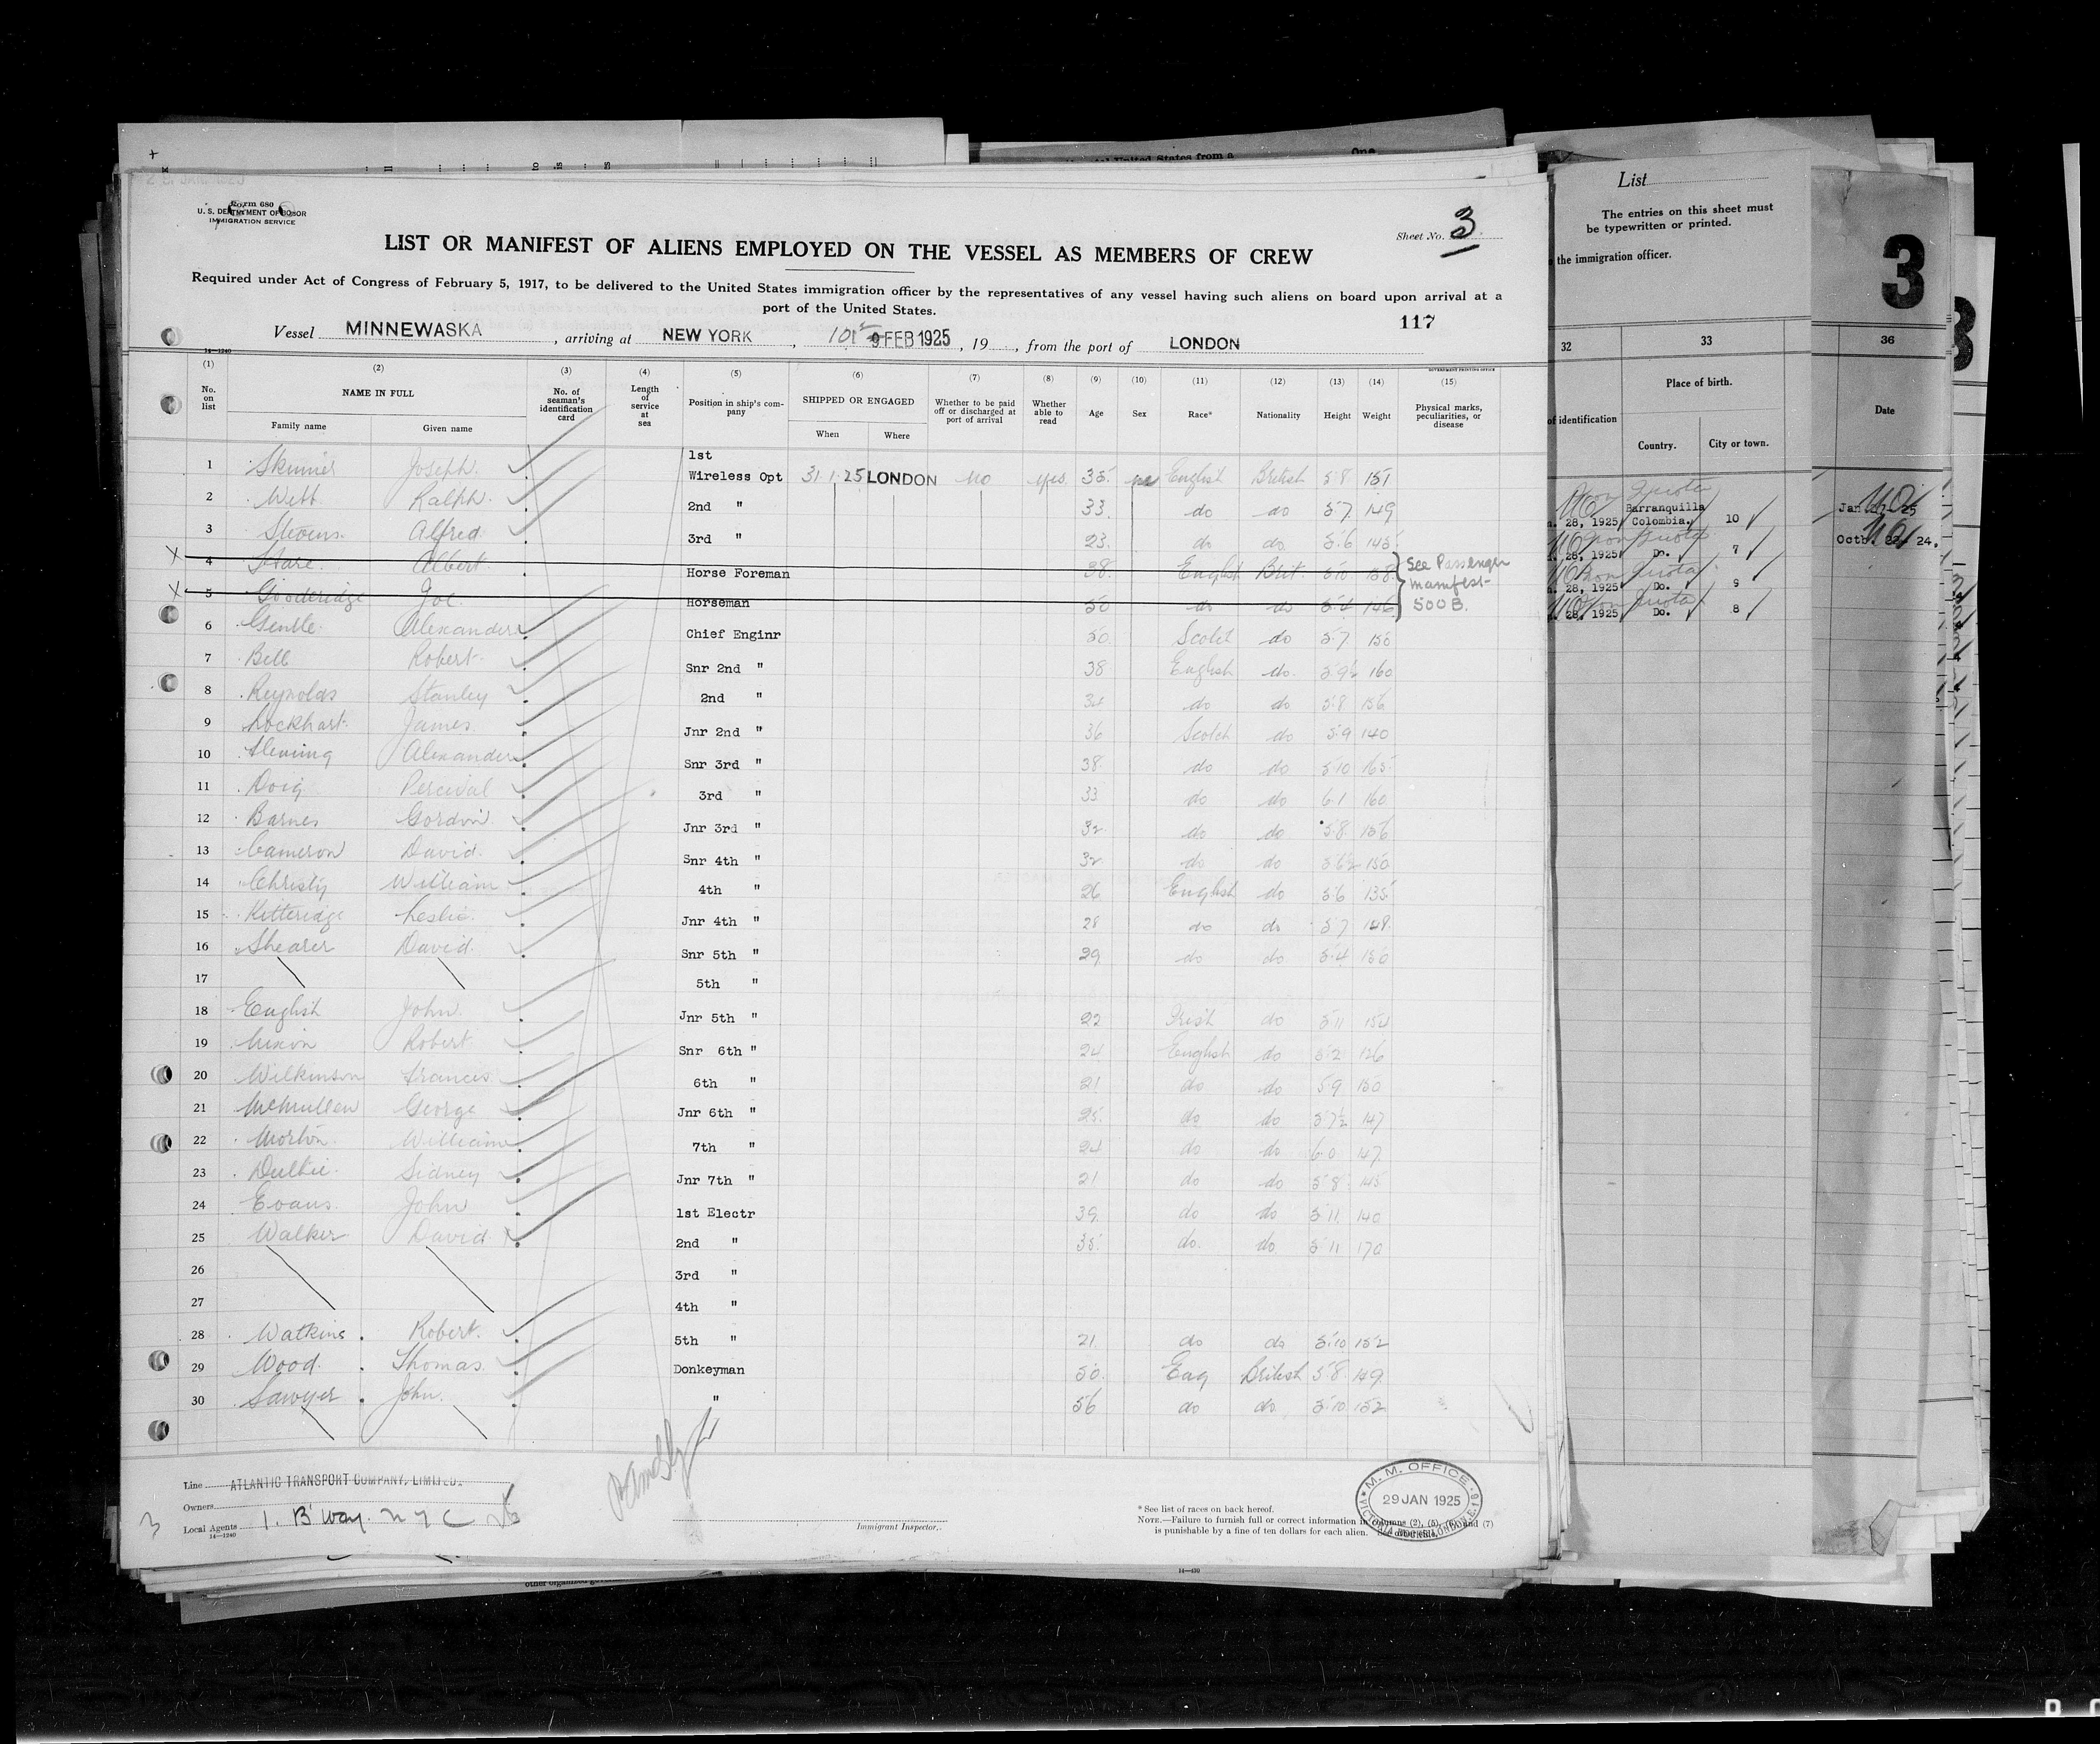 Form 680
U. S. DEPARTMENT OF LABOR
IMMIGRATION SERVICE
Sheet No. 3
LIST OR MANIFEST OF ALIENS EMPLOYED ON THE VESSEL AS MEMBERS OF CREW
Required under Act of Congress of February 5, 1917, to be delivered to the United States immigration officer by the representatives of any vessel having such aliens on board upon arrival at a
port of the United States.
117
Vessel MINNEWASKA , arriving at NEW YORK , 9 FEB 1925 , 19 , from the port of LONDON
14—1240
GOVERNMENT PRINTING OFFICE
(1) (2) (3) (4) (5) (6) (7) (8) (9) (10) (11) (12) (13) (14) (15)
No. on list NAME IN FULL Family name Given name No. of seaman's identification card Length of service at sea Position in ship's company SHIPPED OR ENGAGED When Where Whether to be paid off or discharged at port of arrival Whether able to read Age Sex Race* Nationality Height Weight Physical marks, peculiarities, or disease
1 Skinner Joseph 1st Wireless Opt 31.1.25 LONDON No yes 35 m English British 5.8 151
2 Webb Ralph 2nd " 33 do do 5.7 149
3 Stevens Alfred 3rd " 23 do do 5.6 145
4 Albert Horse Foreman 38 English Brit. 5.10 158 See Passenger
manifest
5 Gooderidge Joe Horseman 50 do do 5.4 146 500B.
6 Gentle Alexander Chief Enginr 50 Scotch do 5.7 156
7 Bell Robert Snr 2nd " 38 English do 5.9½ 160
8 Reynolds Stanley 2nd " 34 do do 5.8 156
9 Lockhart James Jnr 2nd " 36 Scotch do 5.9 140
10 Fleming Alexander Snr 3rd " 38 do do 5.10 165
11 Doig Percival 3rd " 33 do do 6.1 160
12 Barnes Gordon Jnr 3rd " 32 do do 5.8 156
13 Cameron David Snr 4th " 32 do do 5.6½ 150
14 Christy William 4th " 26 English do 5.6 135
15 Kitteridge Leslie Jnr 4th " 28 do do 5.7 148
16 Shearer David Snr 5th " 29 do do 5.4 150
17 5th "
18 English John Jnr 5th " 22 Irish do 5.11 154
19 Nixon Robert Snr 6th " 24 English do 5.2 126
20 Wilkinson Francis 6th " 21 do do 5.9 150
21 McMullen George Jnr 6th " 25 do do 5.7½ 147
22 Morton William 7th " 24 do do 6.0 147
23 Duthie Sidney Jnr 7th " 21 do do 5.8 145
24 Evans John 1st Electr 39 do do 5.11 140
25 Walker David 2nd " 35 do do 5.11 170
26 3rd "
27 4th "
28 Watkins Robert 5th " 21 do do 5.10 152
29 Wood Thomas Donkeyman 50 Eng British 5.8 149
30 Sawyer John " 56 do do 5.10 152
Line ATLANTIC TRANSPORT COMPANY, LIMITED.
Owners
Local Agents 1. B'way. N Y C
14—1240
Immigrant Inspector.
* See list of races on back hereof.
NOTE.—Failure to furnish full or correct information in columns (2), (5), and (7)
is punishable by a fine of ten dollars for each alien.
M. M. OFFICE
29 JAN 1925
VICTORIA DOCKS, LONDON, E.16
List
The entries on this sheet must
be typewritten or printed.
the immigration officer.
32 33 36
Place of birth.
of identification Country. City or town. Date
28, 1925 Barranquilla Colombia. 10
28, 1925 Do. 7
28, 1925 Do. 9
28, 1925 Do. 8
3
14—430